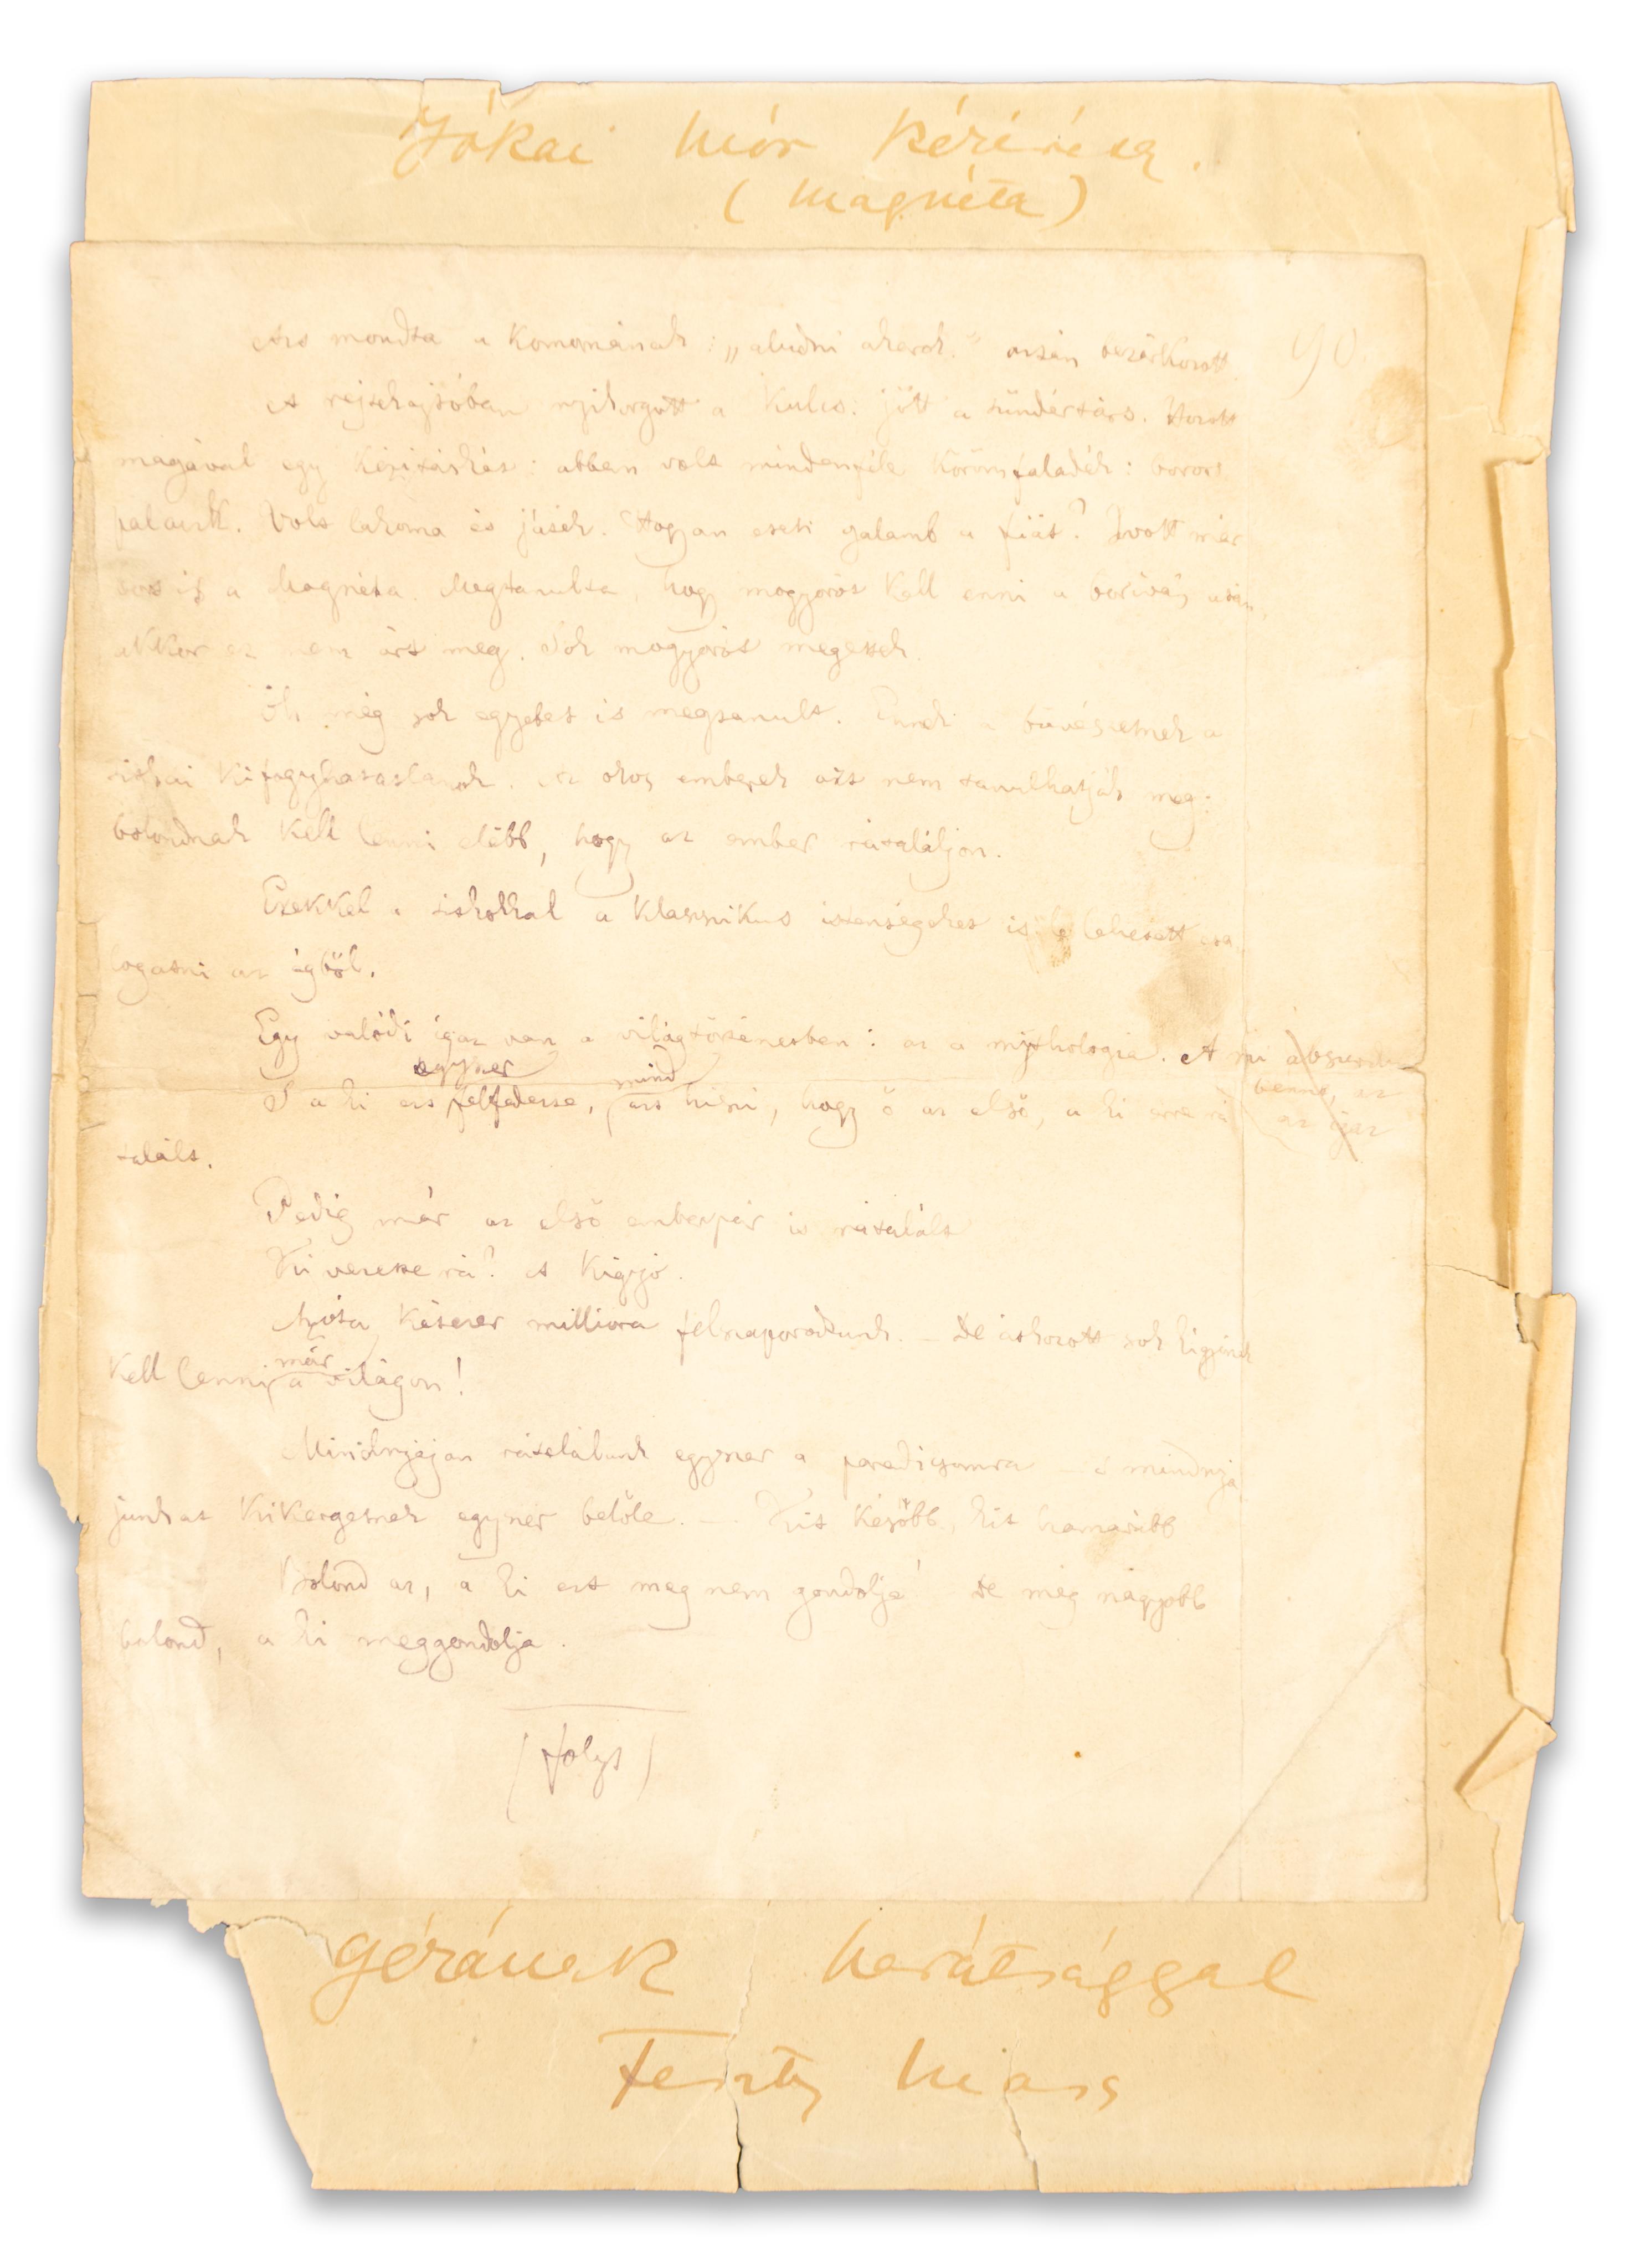 Jókai Mór kézírása.
(Magnéta)
90.
Azt mondta a komornának: „aludni akarok." aztán bezárkozott.
A rejtekajtóban nyikorgott a kulcs: jött a tündértárs. Hozott
magával egy kézitáskát: abban volt mindenféle köröm faladék: boros
palaczk. Volt lakoma és játék. Hogyan eteti galamb a fiát? Ivott már
bort is a Magnéta. Megtanulta, hogy mogyorót kell enni a borivás után,
akkor ez nem árt meg. Sok mogyorót megettek.
Óh még sok egyebet is megtanult. Ennek a bűvészetnek a
titkai kifogyhatatlanok. Az okos emberek azt nem tanulhatják meg:
bolondnak kell lenni előbb, hogy az ember rátaláljon.
Ezekkel a titkokkal a klassikus istenségeket is le lehetett csa
logatni az égből.
Egy valódi igaz van a világtörténetben: az a mythologia. A mi absurdum
benne, az
az igaz
egyszer mind
S a ki ezt felfedezte, azt hiszi, hogy ő az első, a ki erre rá
talált.
Pedig már az első emberpár is rátalált
Ki vezette rá? A kígyó.
Azóta kétezer millióra felszaporodtunk. – De átkozott sok kígyónak
már
kell lenni a világon!
Mindnyájan rátalálunk egyszer a paradicsomra – s mindnyá
junkat kikergetnek egyszer belőle. – Kit később, kit hamarább
Bolond az, a ki ezt meg nem gondolja! De még nagyobb
bolond, a ki meggondolja.
(folyt)
Gézának barátsággal
Feszty Masa